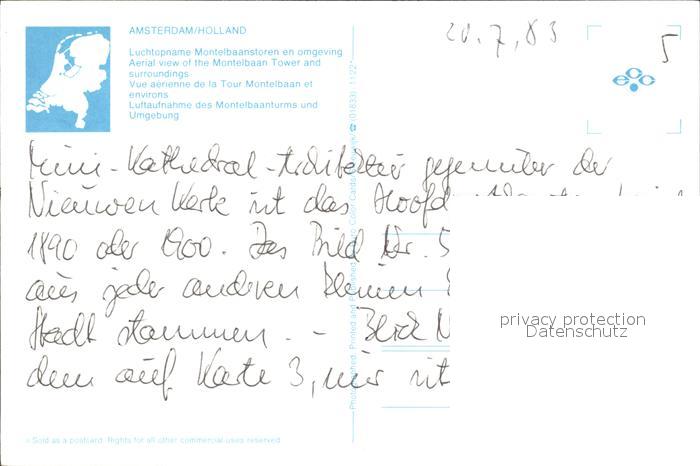 AMSTERDAM/HOLLAND
Luchtopname Montelbaanstoren en omgeving
Aerial view of the Montelbaan Tower and
surroundings
Vue aérienne de la Tour Montelbaan et
environs
Luftaufnahme des Montelbaanturms und
Umgebung
20.7.83
5
ecc
Mini-Kathedral-Architektur gegenüber der
Nieuwen Kerk ist das Hoofd
1890 oder 1900. Das Bild Nr. 5
aus jeder anderen kleinen
Stadt stammen. - Blick N
dem auf Karte 3, nur ist
privacy protection
Datenschutz
Sold as a postcard. Rights for all other commercial uses reserved